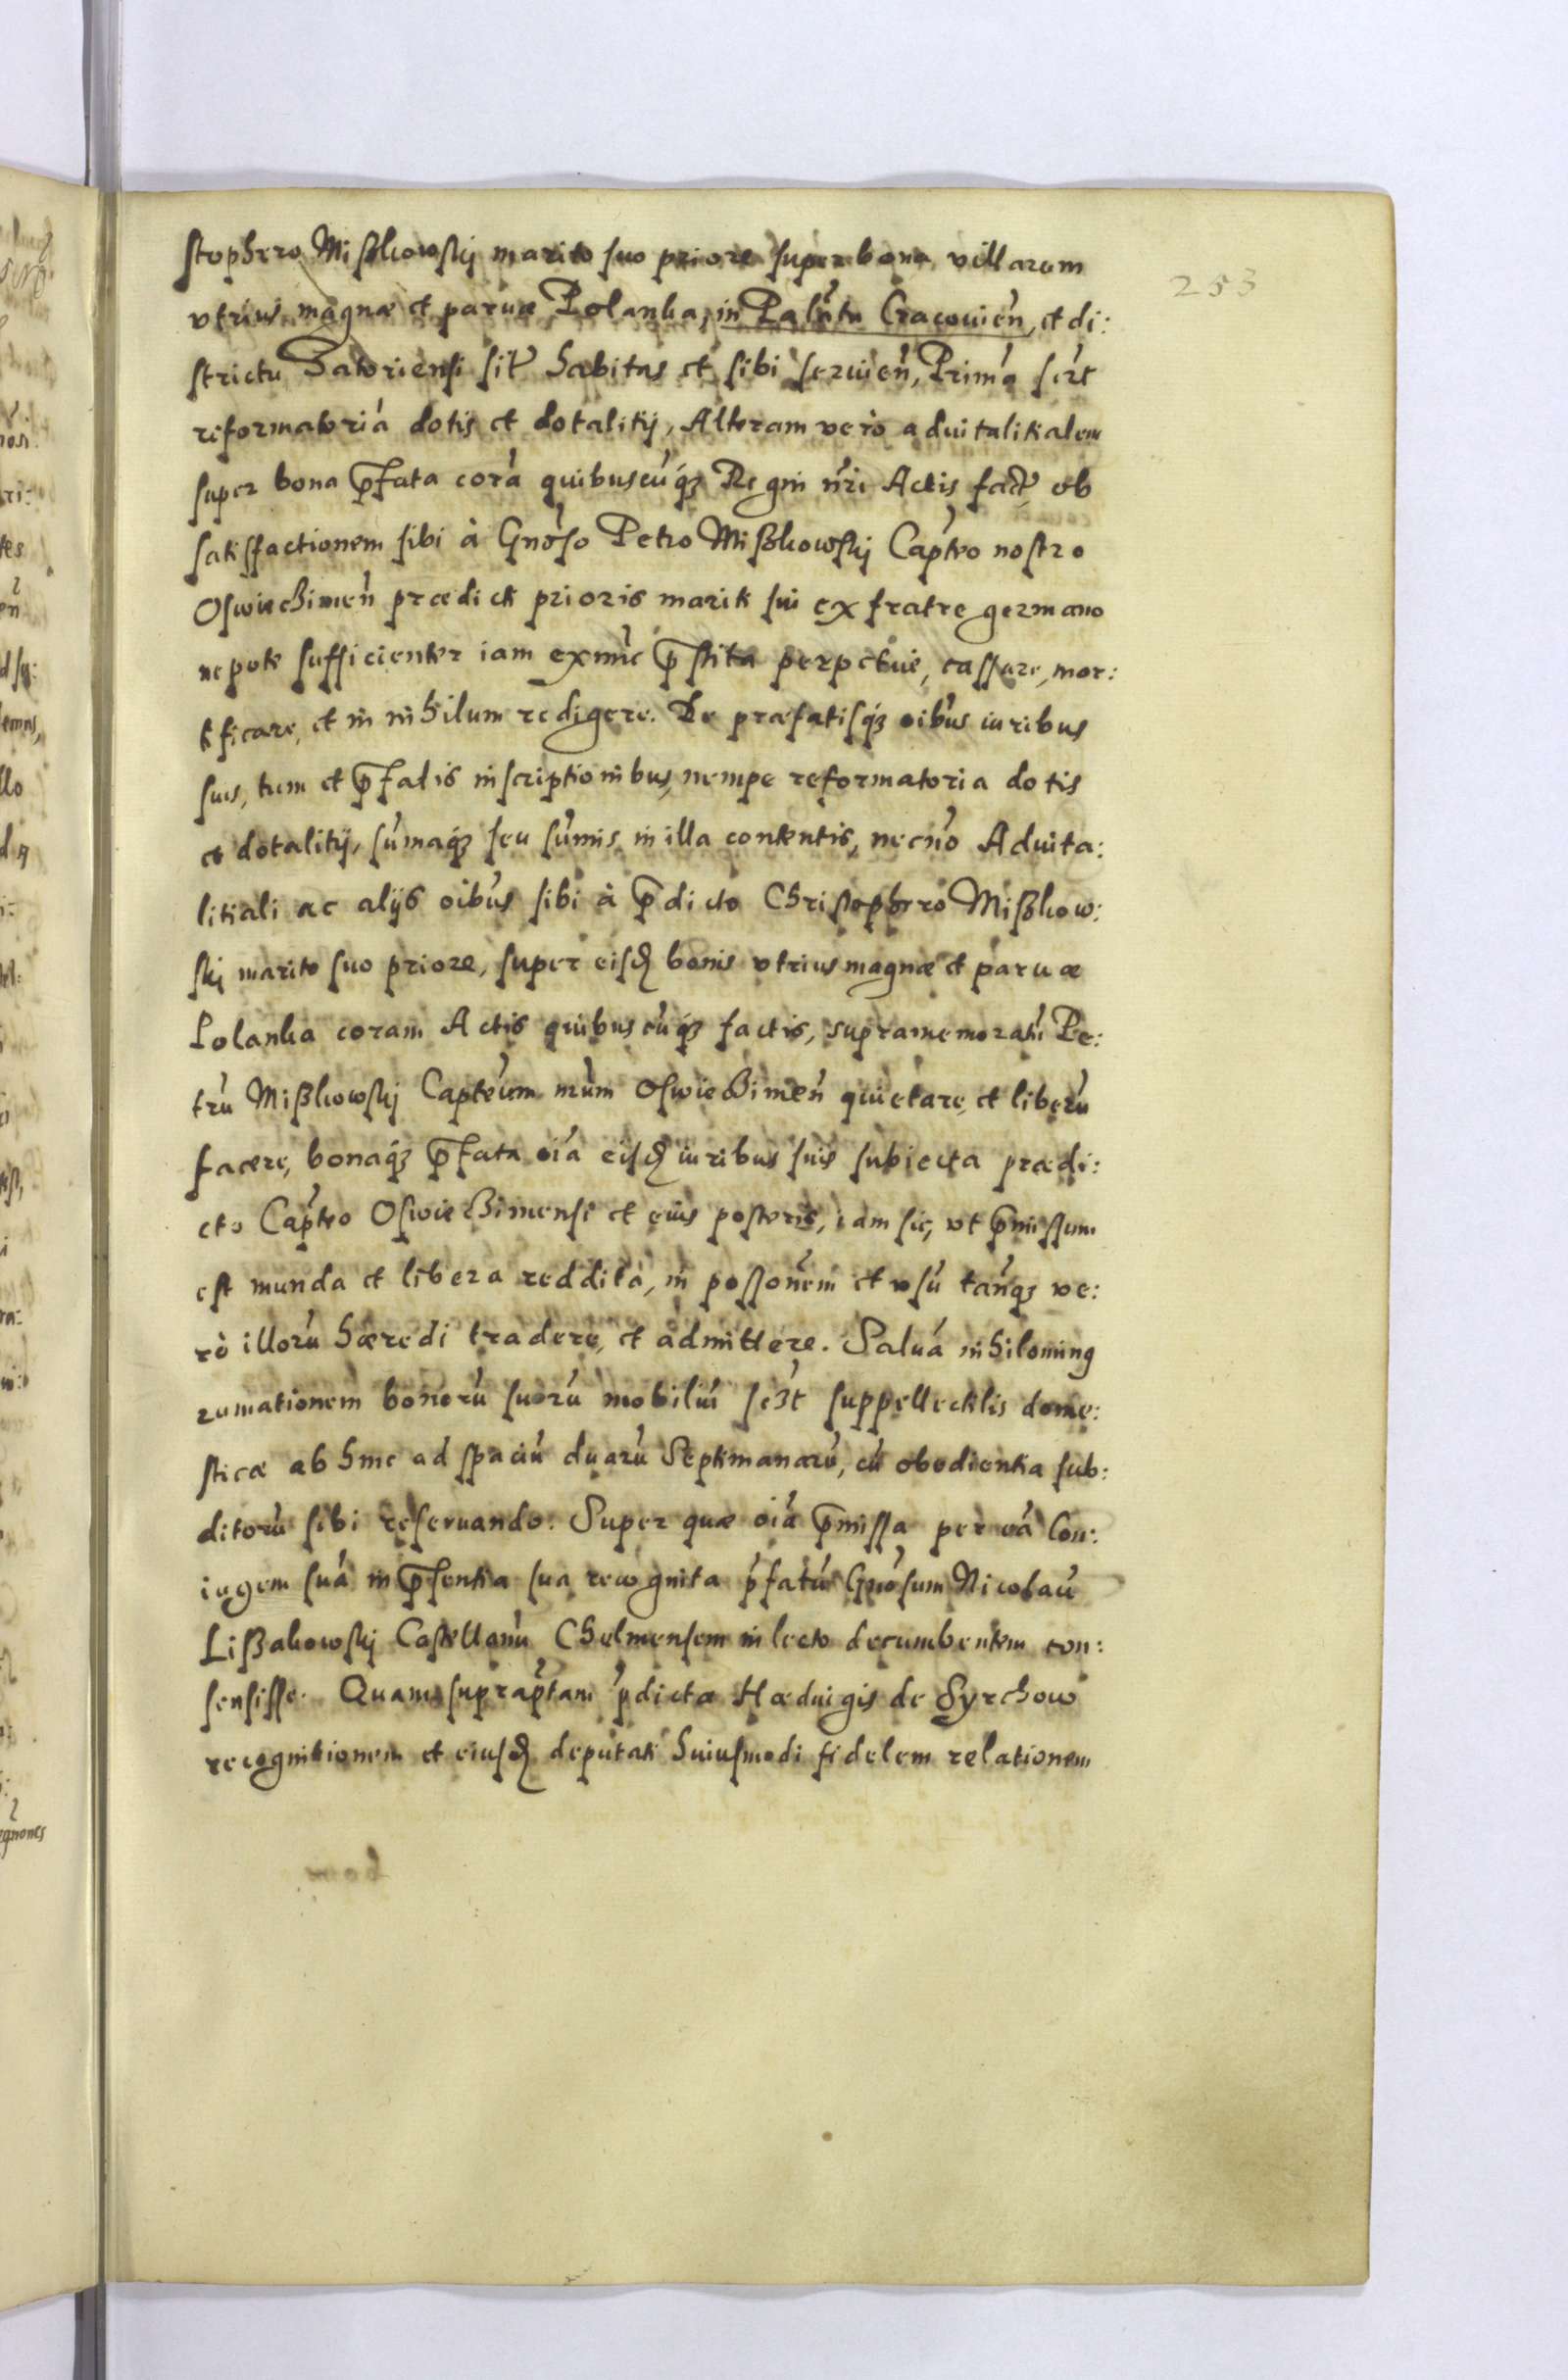 253
stophero Mißkowskij marito suo priore super bona villarum
vtrius magnæ et paruæ Polanka, in Palñtu Cracouień, et di:
strictu Zatoriensi sitʳ habitas et sibi seruień, Primá sc̃zt
reformatoriá dotis et dotalitij, Alteram verò aduitalitialem
super bona p̄fata corá quibuscúq́ʒ Regni ñri Actis fact̃ ob
satisfactionem sibi à Gnõso Petro Mißkowskij Capt̃eo nostro
Oswiecimeń prædicti prioris mariti sui ex fratre germano
nepote sufficienter iam exnúc p̄stita perpetuè, cassare, mor:
tificare, et in nihilum redigere. De præfatisq́ʒ oibús iuribus
suis, tum et p̄fatis inscriptionibus, nempe reformatoria dotis
et dotalitij, súmaq́ʒ seu súmis in illa contentis, necnó Aduita:
litiali ac alijs oibús sibi à p̄dicto Christophero Mißkow:
skij marito suo priore, super eisd̃ bonis vtrius magnæ et paruæ
Polanka coram Actis quibuscúq́ʒ factis, supramemoratú Pe:
trú Mißkowskij Capteúm nr̃um Oswiecimeń quietare, et liberú
facere, bonaq́ʒ p̄fata oiá eisd̃ iuribus suis subiecta prædi:
cto Capt̃eo Oswiecimensi et eius posteris, iam sic, vt p̄missum
est munda et libera reddita, in possonẽm et vsú tanq́ʒ ve:
rò illorú hæredi tradere, et admittere. Saluá nihilominꝰ
rumationem bonorú suorú mobiliú sc̃zt suppellectilis dome:
sticæ ab hinc ad spaciú duarú Septimanarú, cú obedientia sub:
ditorú sibi reseruando. Super quæ oiá p̄missa per eá Con:
iugem suá in p̄sentia sua recognita p̃fatú Gnõsum Nicolaú
Lißakowskij Castellanú Chelmensem in lecto decumbentem con:
sensisse. Quam suprap̃tam p̃dictæ Hæduigis de Syrchow
recognitionem et eiusd̃ deputati huiusmodi fidelem relationem